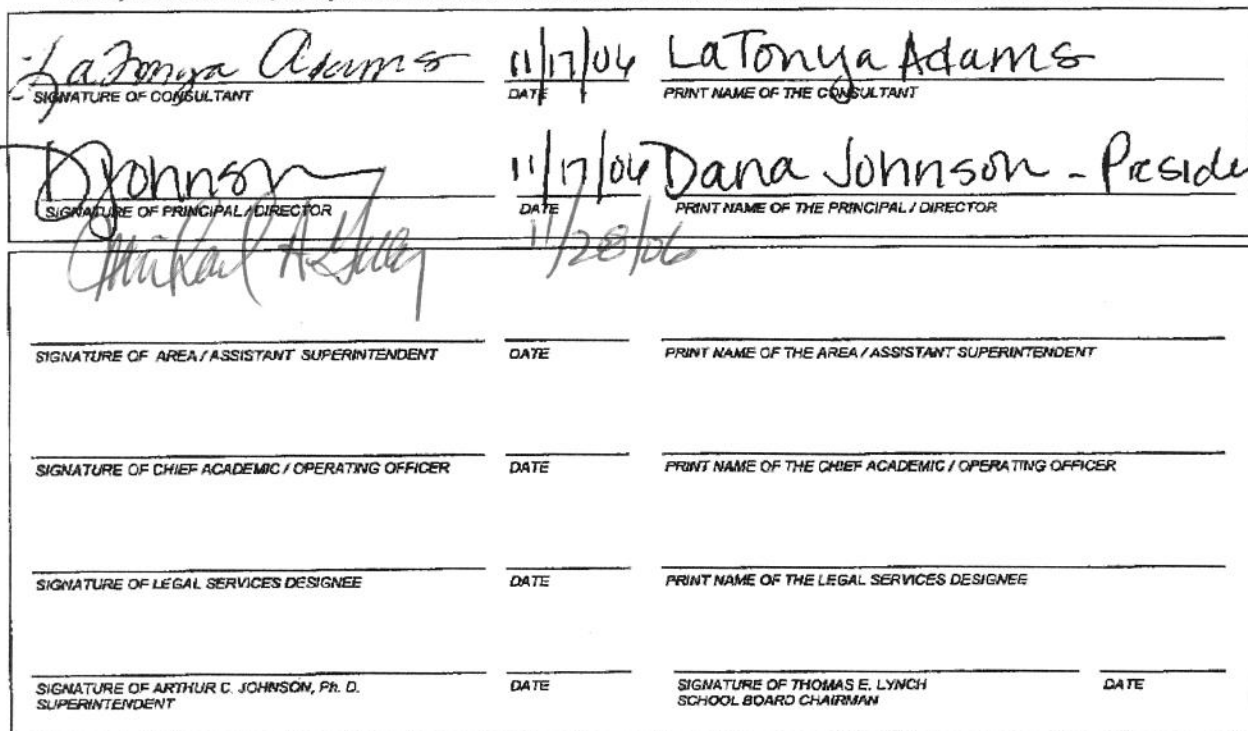 LaTonya Adams 11/17/06 LaTonya Adams
SIGNATURE OF CONSULTANT DATE PRINT NAME OF THE CONSULTANT
DJohnson 11/17/06 Dana Johnson - Preside
SIGNATURE OF PRINCIPAL / DIRECTOR DATE PRINT NAME OF THE PRINCIPAL / DIRECTOR
11/28/06
SIGNATURE OF AREA / ASSISTANT SUPERINTENDENT DATE PRINT NAME OF THE AREA / ASSISTANT SUPERINTENDENT
SIGNATURE OF CHIEF ACADEMIC / OPERATING OFFICER DATE PRINT NAME OF THE CHIEF ACADEMIC / OPERATING OFFICER
SIGNATURE OF LEGAL SERVICES DESIGNEE DATE PRINT NAME OF THE LEGAL SERVICES DESIGNEE
SIGNATURE OF ARTHUR C. JOHNSON, Ph. D. DATE SIGNATURE OF THOMAS E. LYNCH DATE
SUPERINTENDENT SCHOOL BOARD CHAIRMAN